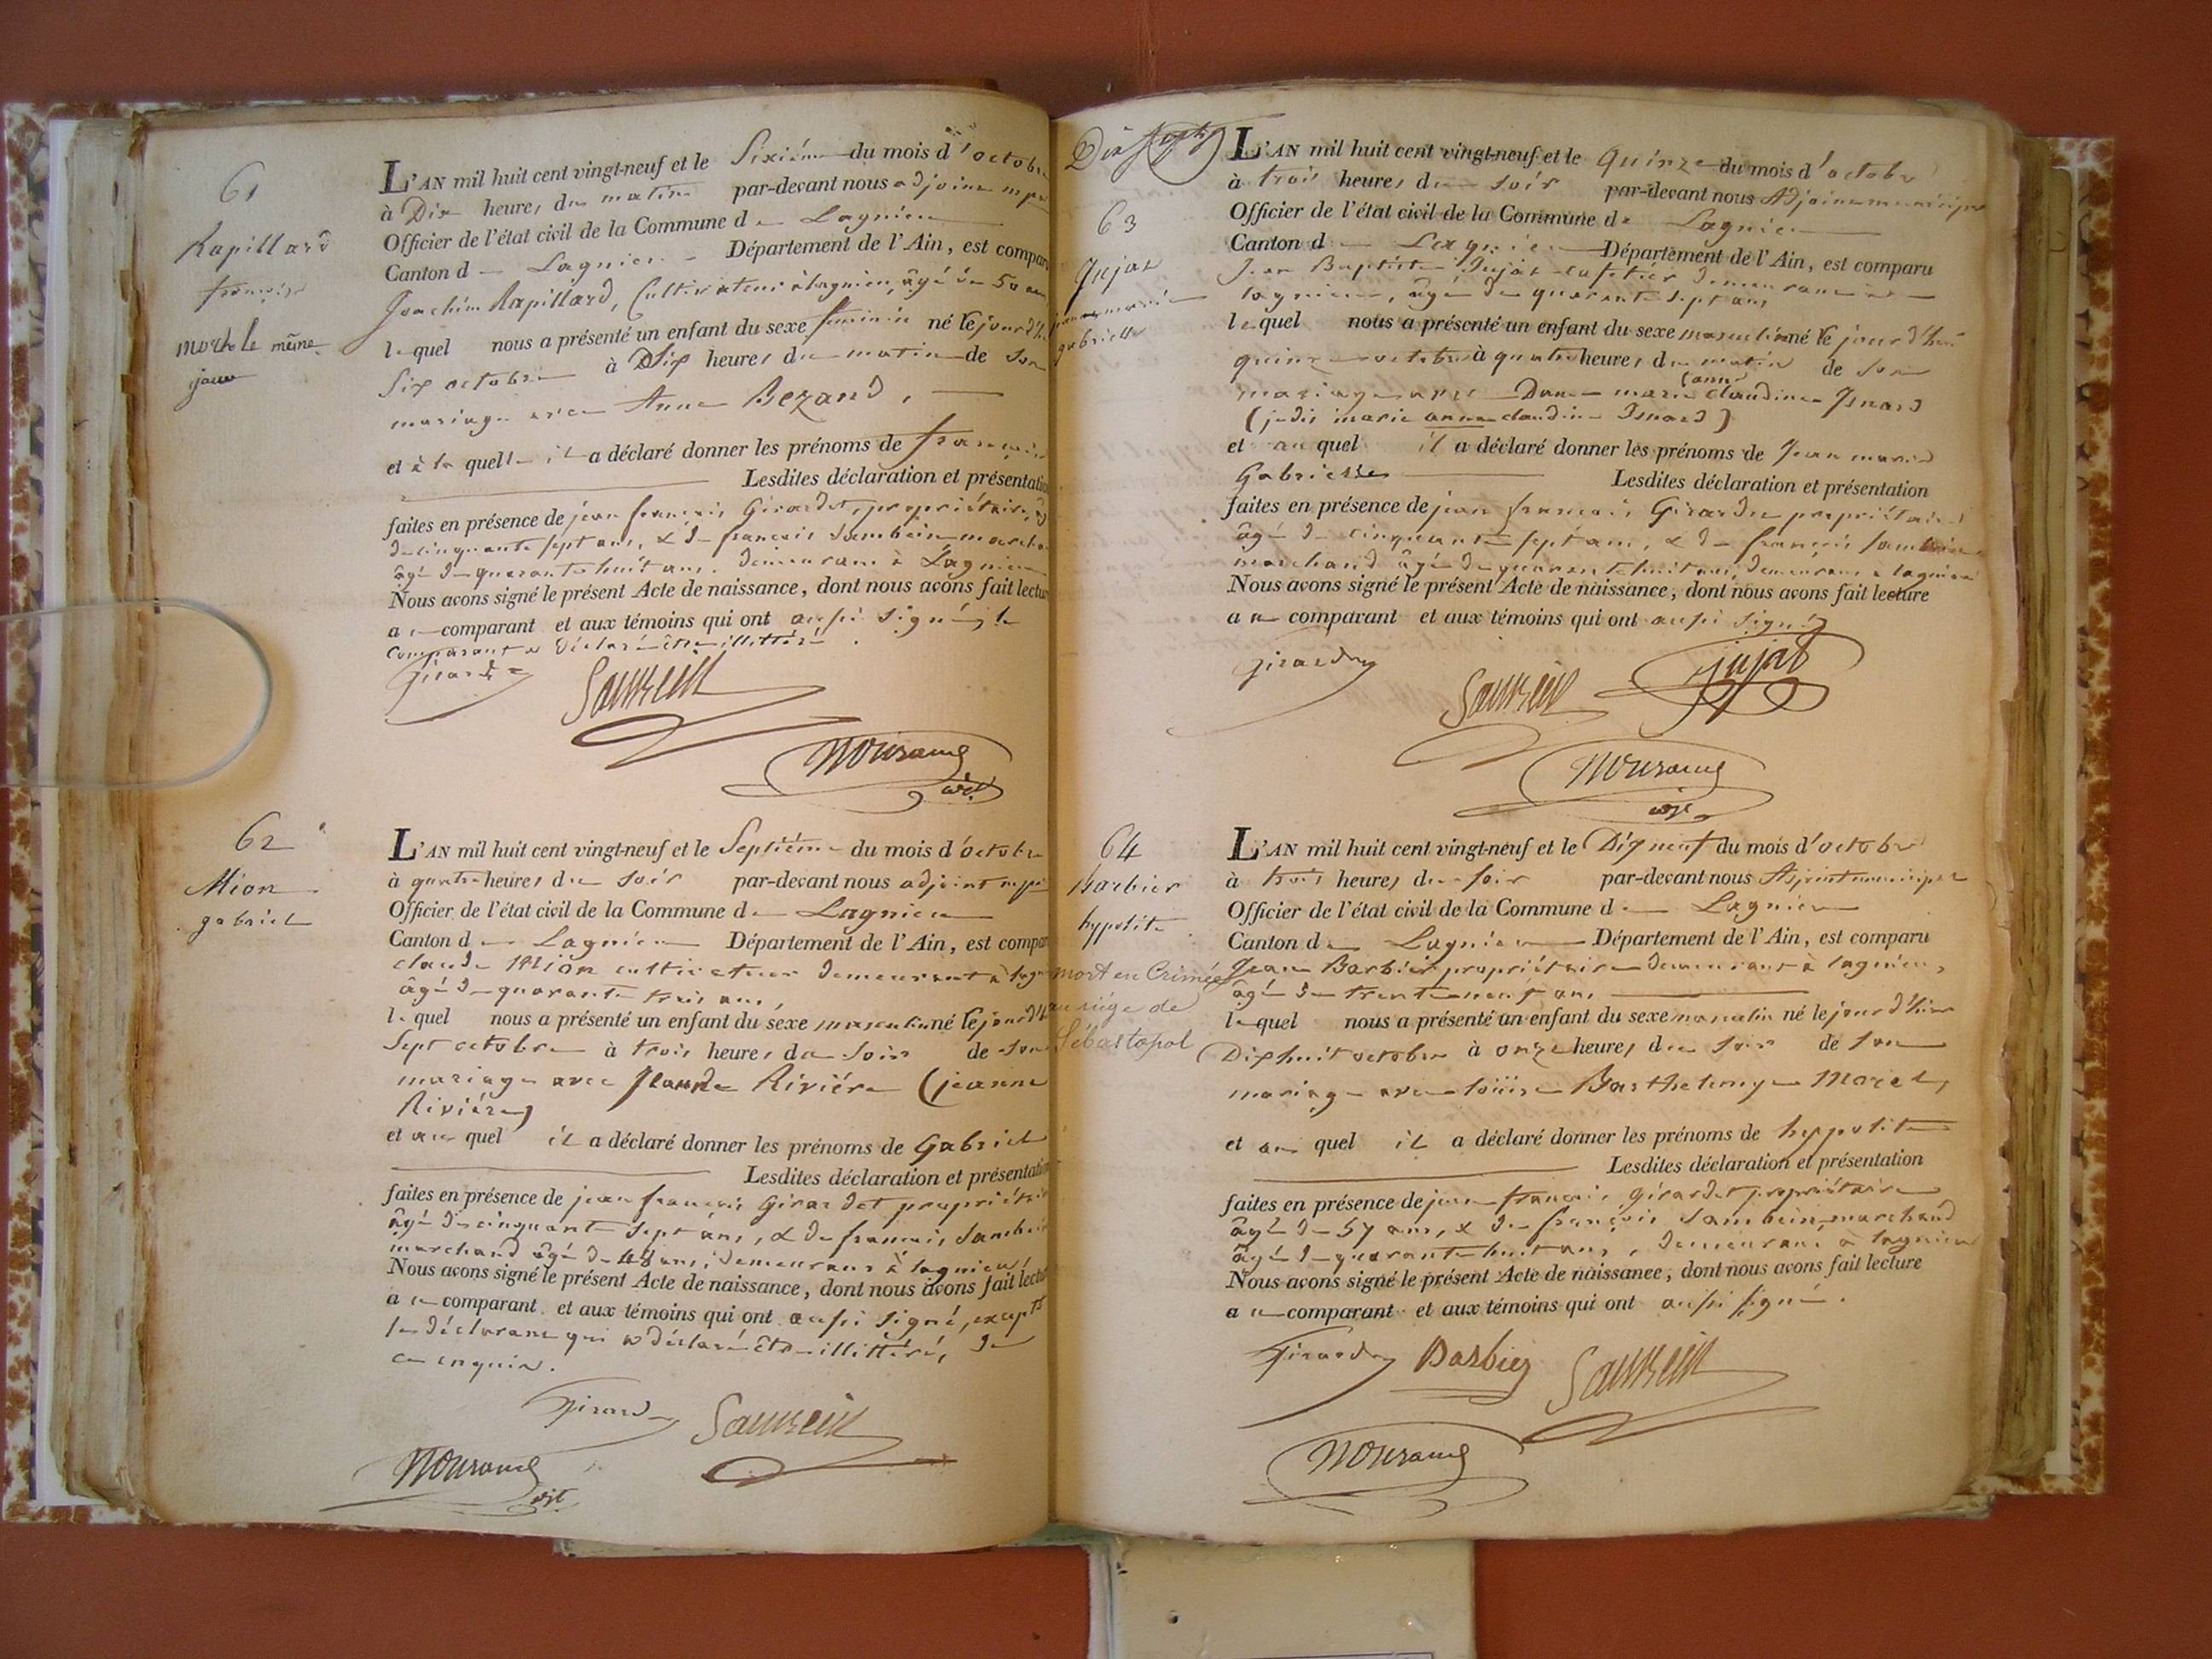 61
Rapillard
françoise
morte le même
jour
L'AN mil huit cent vingt-neuf et le Sixième du mois d'octobre
à Dix heures du matin par-devant nous adjoint
Officier de l'état civil de la Commune de Lagnieu
Canton de Lagnieu Département de l'Ain, est comparu
Joachim Rapillard, Cultivateur à lagnieu, âgé de 50 ans
lequel nous a présenté un enfant du sexe feminin né le jourd'hui
Six octobre à Dix heures du matin de son
mariage avec Anne Bezand,
et à la quelle il a déclaré donner les prénoms de françoise
Lesdites déclaration et présentation
faites en présence de jean françois Girardet, propriétaire, âgé
de cinquante sept ans, & de françois Sambein marchand
âgé de quarante huit ans. demeurans à Lagnieu
Nous avons signé le présent Acte de naissance, dont nous avons fait lecture
au comparant et aux témoins qui ont aussi signés, le
comparant a déclaré être illittéré.
Girardet
Sambein
62
Mion
gabriel
L'AN mil huit cent vingt-neuf et le Septième du mois d'octobre
à quatre heures du soir par-devant nous adjoint
Officier de l'état civil de la Commune de Lagnieu
Canton de Lagnieu Département de l'Ain, est comparu
claude Mion cultivateur demeurant à lagnieu
âgé de quarante trois ans,
lequel nous a présenté un enfant du sexe masculin né le jourd'hui
Sept octobre à trois heures du soir de son
mariage avec Rivière (jeanne
Rivière)
et au quel il a déclaré donner les prénoms de Gabriel
Lesdites déclaration et présentation
faites en présence de jean françois Girardet propriétaire
âgé de cinquante sept ans, & de françois Sambein
marchand âgé de 48 ans, demeurans à lagnieu,
Nous avons signé le présent Acte de naissance, dont nous avons fait lecture
au comparant et aux témoins qui ont aussi signé, excepté
le déclarant qui a déclaré être illittéré, de
ce enquis.
Girardet
Sambein
Dix Sept
63
Jujat
jean marie
gabrielle
L'AN mil huit cent vingt-neuf et le Quinze du mois d'octobre
à trois heures du soir par-devant nous Adjoint municipal
Officier de l'état civil de la Commune de Lagnieu
Canton de Lagnieu Département de l'Ain, est comparu
Jean Baptiste Jujat cafetier demeurant à
lagnieu, âgé de quarante sept ans
lequel nous a présenté un enfant du sexe masculin né le jourd'hui
quinze octobre à quatre heures du matin de son
mariage avec Dame marie (anne) claudine Isnard
(jedis marie anne claudine Isnard)
et au quel il a déclaré donner les prénoms de Jean marie
Gabrielle
Lesdites déclaration et présentation
faites en présence de jean françois Girardet propriétaire
âgé de cinquante sept ans, & de françois Sambein
marchand âgé de quarante huit ans, demeurans à lagnieu
Nous avons signé le présent Acte de naissance, dont nous avons fait lecture
au comparant et aux témoins qui ont aussi signés
Girardet
Sambein
Jujat
64
Barbier
hyppolite
mort en Crimée
au siége de
Sébastopol
L'AN mil huit cent vingt-neuf et le Dix neuf du mois d'octobre
à trois heures du soir par-devant nous Adjoint municipal
Officier de l'état civil de la Commune de Lagnieu
Canton de Lagnieu Département de l'Ain, est comparu
Jean Barbier propriétaire demeurant à lagnieu,
âgé de trente neuf ans
lequel nous a présenté un enfant du sexe masculin né le jour d'hier
Dix huit octobre à onze heures du soir de son
mariage avec loüise Barthelemye Morel,
et au quel il a déclaré donner les prénoms de hyppolite
Lesdites déclaration et présentation
faites en présence de jean françois girardet propriétaire
âgé de 57 ans, & de françois Sambein marchand
âgé de quarante huit ans, demeurans à lagnieu
Nous avons signé le présent Acte de naissance, dont nous avons fait lecture
au comparant et aux témoins qui ont aussi signé.
Girardet
Barbier
Sambein